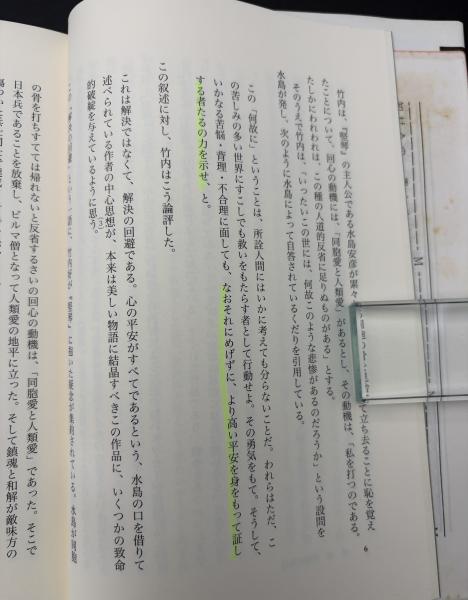 竹内は、『竪琴』の主人公である水島安彦が累々
て立ち去ることに恥を覚え
たことについて、回心の動機には、「同胞愛と人類愛」があるとし、その動機は、「私を打つのである。
たしかにわれわれは、この種の人道的反省に足りぬものがある」とする。
そのうえで竹内は、「いったいこの世には、何故このような悲惨があるのだろうか」という設問を
水島が発し、次のように水島によって自答されているくだりを引用している。
この「何故に」ということは、所詮人間にはいかに考えても分らないことだ。われらはただ、こ
の苦しみの多い世界にすこしでも救いをもたらす者として行動せよ。その勇気をもて。そうして、
いかなる苦悩・背理・不合理に面しても、なおそれにめげずに、より高い平安を身をもって証し
する者たるの力を示せ、と。
この叙述に対し、竹内はこう論評した。
これは解決ではなくて、解決の回避である。心の平安がすべてであるという、水島の口を借りて
述べられている作者の中心思想が、本来は美しい物語に結晶すべきこの作品に、いくつかの致命
的破綻を与えているように思う。(3)
の骨を打ちすてては帰れないと反省するさいの回心の動機は、「同胞愛と人類愛」であった。そこで
日本兵であることを放棄し、ビルマ僧となって人類愛の地平に立った。そして鎮魂と和解が敵味方の
6
M